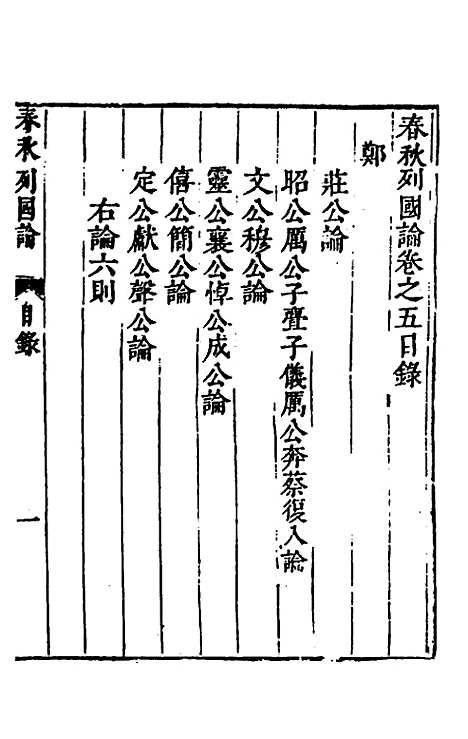 春秋列國論卷之五目錄
鄭
莊公論
昭公厲公子亹子儀厲公奔蔡復入論
文公穆公論
靈公襄公悼公成公論
僖公簡公論
定公獻公聲公論
右論六則
春秋列國論 目錄 一